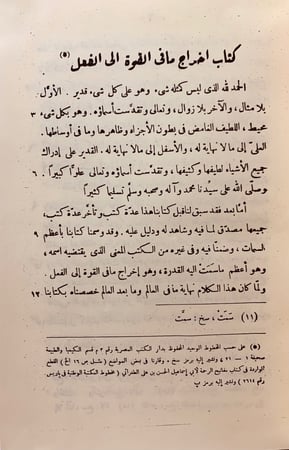 كتاب اخراج مافى القوة الى الفعل (٥)
الحمد لله الذى ليس كمثله شىء وهو على كل شىء قدير . الأوّل
بلا مثال ، والآخر بلا زوال ، وتعالى وتقدّست أسماؤه . وهو بكل شىء ٣
محيط ، اللطيف الغامض فى بطون الأجزاء وظاهرها وما فى أوساطها .
العلىّ إلى ما لا نهاية له ، والأسفل إلى مالا نهاية له . القدير على إدراك
جميع الأشياء لطيفها وكثيفها ، وتقدّست أسماؤه وتعالى علوّا كبيرًا . ٦
وصلّى الله على سيّدنا محمد وآله وصحبه وسلّم تسليما كثيرًا
أمّا بعد فقد سبق لنا قبل كتابنا هذا عدّة كتب وتأخّر عدّة كتب ،
جميعها مصدّق لما فيه وشاهد له ودليل عليه . وقد وسمنا كتابنا بأعظم ٩
السمات ، وضمنّا فيه وفى غيره من الكتب المعنى الذى يقتضيه اسمه ،
وهو أعظم ما سَمَتْ اليه القدرة ، وهو إخراج مافى القوة إلى الفعل .
ولمّا كان هذا الكلام نهاية مافى العالم وما بعد العالم خصصناه بكتابنا ١٢
(١١) سَمَتْ ، سخ : سمّت
(٥) على حسب المخطوط الوحيد المحفوظ بدار الكتب المصرية رقم ٣ م قسم الكيمياء والطبيعة
صحيفة ١ — ٣١ ونشير إليه برمز سخ ، وقارنا فى بعض المواضع القطع
الواردة فى كتاب مفاتيح الرحمة لأبى إسماعيل الحسن بن على الطغرائى ( مخطوط المكتبة الوطنية فى باريس
رقم ٢٦١٤ ) ونشير إليه برمز پ